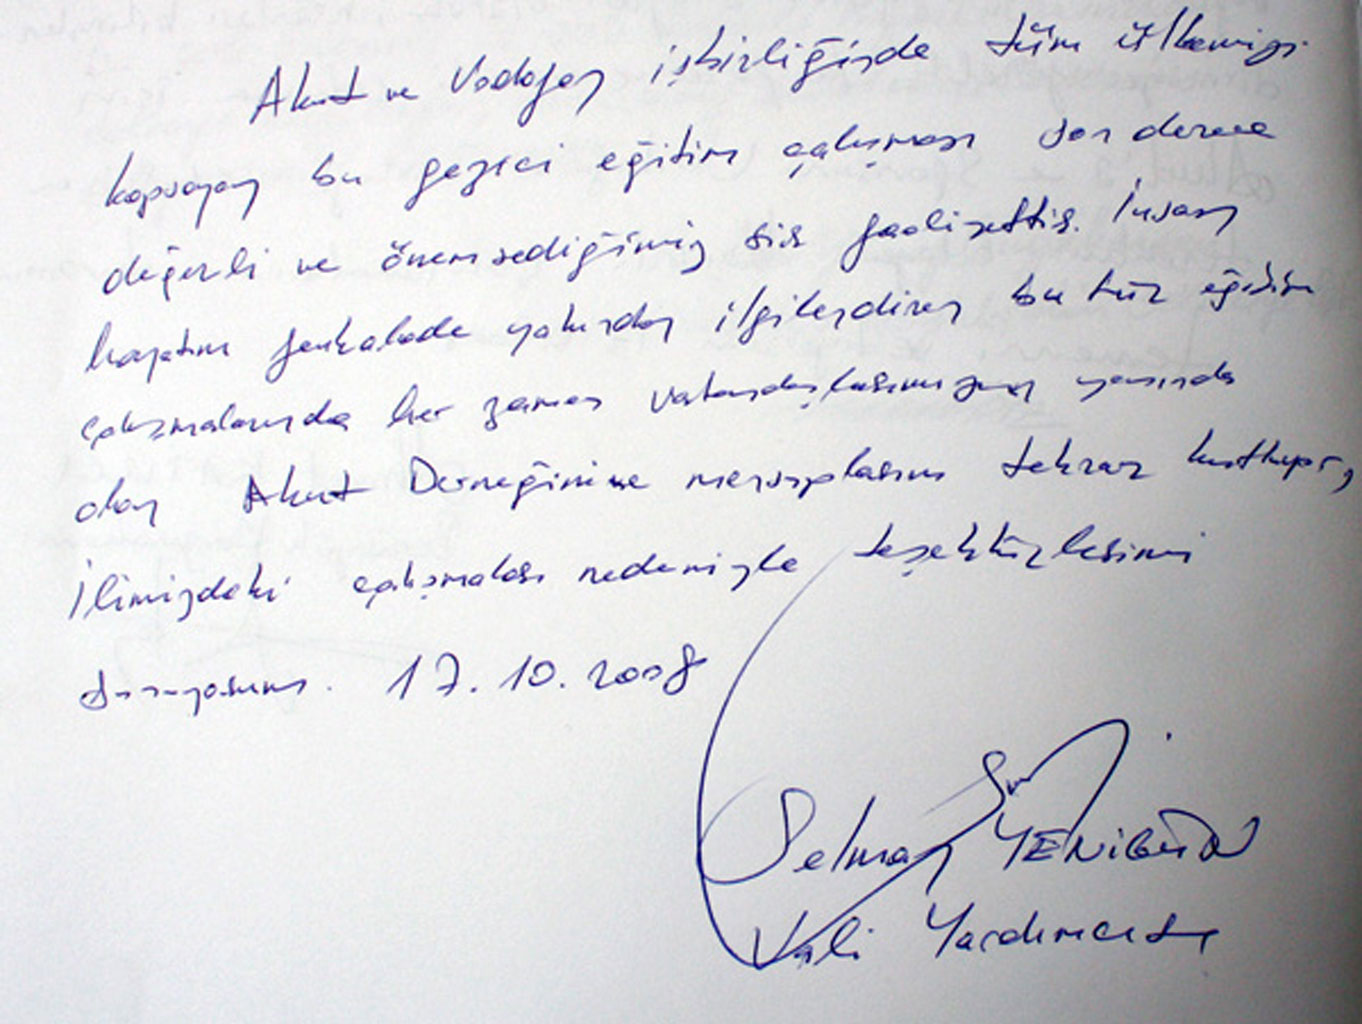 Akut ve Vodafon işbirliğinde tüm ülkemizi
kapsayan bu gezici eğitim çalışması son derece
değerli ve önemsediğimiz bir faaliyettir. İnsan
hayatını fevkalade yakından ilgilendiren bu tür eğitim
çalışmalarında her zaman vatandaşlarımızın yanında
olan Akut Derneğimize mensuplarını tekrar kutluyor,
İlimizdeki çalışmaları nedeniyle teşekkürlerimi
sunuyorum. 17.10.2008
Selman YENİGÜN
Vali Yardımcısı